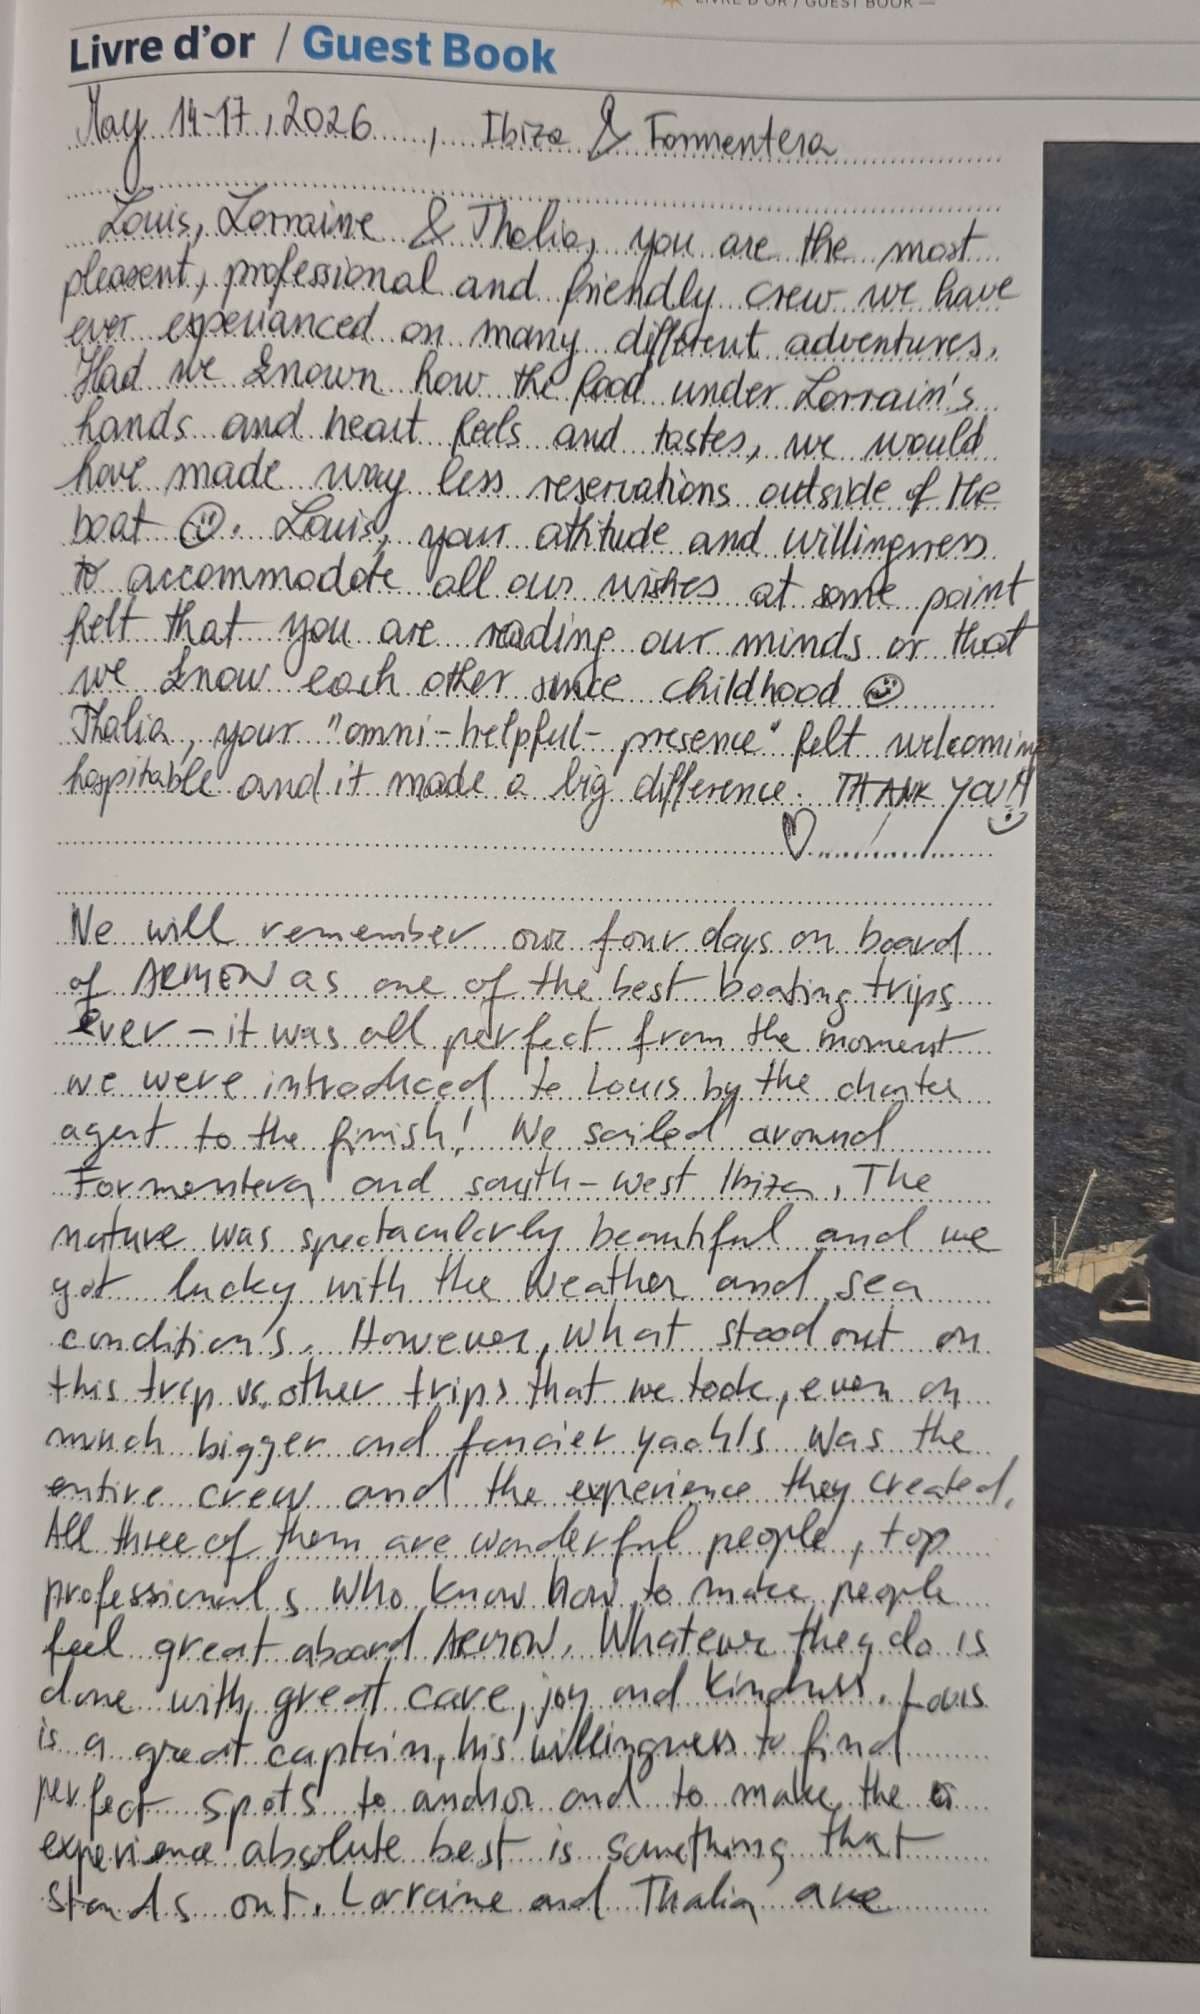 LIVRE D'OR / GUEST BOOK —
Livre d'or / Guest Book
May 14-17, 2026, Ibiza & Formentera
Louis, Lorraine & Thalia, you are the most
pleasent, professional and friendly crew we have
ever experianced on many different adventures.
Had we known how the food under Lorrain's
hands and heart feels and tastes, we would
have made way less reservations outside of the
boat ☺. Louis, your attitude and willingness
to accommodate all our wishes at some point
felt that you are reading our minds or that
we know each other since childhood ☺
Thalia, your "omni-helpful-presence" felt welcoming
hospitable and it made a big difference. THANK YOU!!
♡
We will remember our four days on board
of ARMEN as one of the best boating trips
ever – it was all perfect from the moment
we were introduced to Louis by the charter
agent to the finish! We sailed around
Formentera and south-west Ibiza. The
nature was spectacularly beautiful and we
got lucky with the weather and sea
conditions. However, what stood out on
this trip vs. other trips that we took, even on
much bigger and fancier yachts was the
entire crew and the experience they created.
All three of them are wonderful people, top
professionals who know how to make people
feel great aboard. Whatever they do is
done with great care, joy and kindness. Louis
is a great captain, his willingness to find
perfect spots to anchor and to make the
experience absolute best is something that
stands out. Lorraine and Thalia are